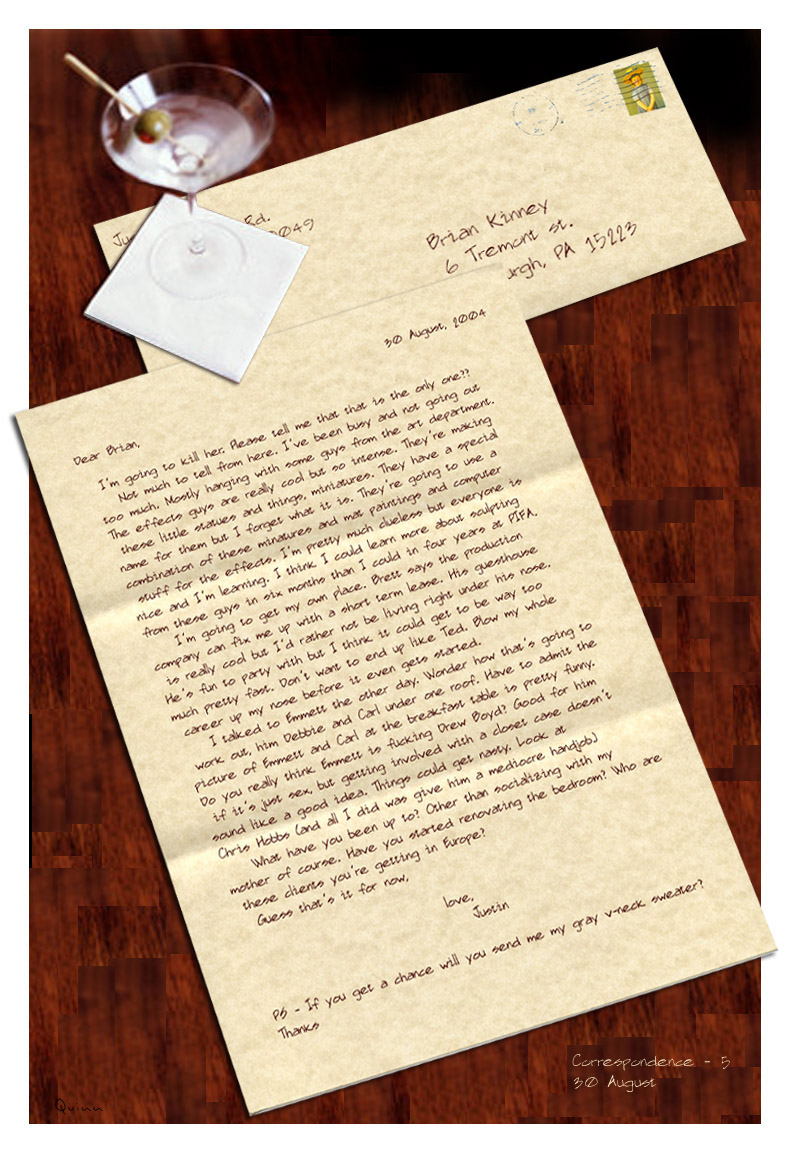 Rd.
0049
Brian Kinney
6 Tremont St.
urgh, PA 15223
30 August, 2004
Dear Brian,
I'm going to kill her. Please tell me that that is the only one??
Not much to tell from here. I've been busy and not going out
too much. Mostly hanging with some guys from the art department.
The effects guys are really cool but so intense. They're making
these little statues and things, miniatures. They have a special
name for them but I forget what it is. They're going to use a
combination of these minatures and mat paintings and computer
stuff for the effects. I'm pretty much clueless but everyone is
nice and I'm learning. I think I could learn more about sculpting
from these guys in six months than I could in four years at PIFA.
I'm going to get my own place. Brett says the production
company can fix me up with a short term lease. His guesthouse
is really cool but I'd rather not be living right under his nose.
He's fun to party with but I think it could get to be way too
much pretty fast. Don't want to end up like Ted. Blow my whole
career up my nose before it even gets started.
I talked to Emmett the other day. Wonder how that's going to
work out, him Debbie and Carl under one roof. Have to admit the
picture of Emmett and Carl at the breakfast table is pretty funny.
Do you really think Emmett is fucking Drew Boyd? Good for him
if it's just sex, but getting involved with a closet case doesn't
sound like a good idea. Things could get nasty. Look at
Chris Hobbs (and all I did was give him a mediocre handjob)
What have you been up to? Other than socializing with my
mother of course. Have you started renovating the bedroom? Who are
these clients you're getting in Europe?
Guess that's it for now,
love,
Justin
PS - If you get a chance will you send me my gray v-neck sweater?
Thanks
Correspondence - 5
30 August
Quinn